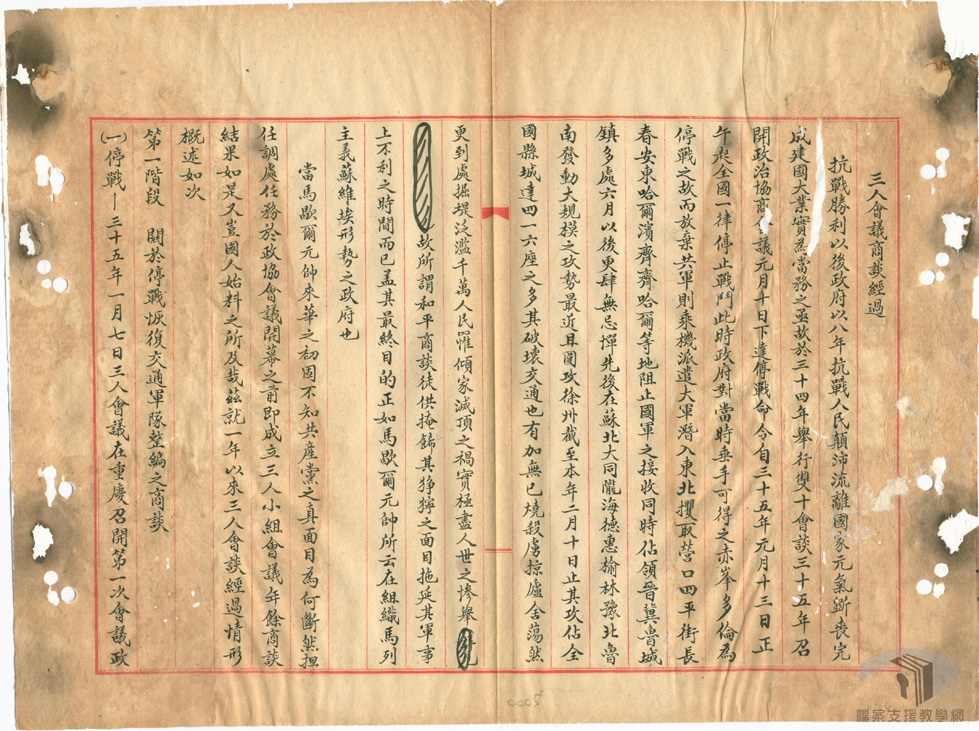 三人會議商談經過
抗戰勝利以後政府以八年抗戰人民顛沛流離國家元氣斲喪完
成建國大業實為當務之亟故於三十四年舉行雙十會談三十五年召
開政治協商會議元月十日下達停戰命令自三十五年元月十三日正
午起全國一律停止戰鬥此時政府對當時垂手可得之赤峯多倫為
停戰之故而放棄共軍則乘機派遣大軍潛入東北攫取營口四平街長
春安東哈爾濱齊齊哈爾等地阻止國軍之接收同時佔領晉冀魯城
鎮多處六月以後更肆無忌憚先後在蘇北大同隴海德惠榆林豫北魯
南發動大規模之攻勢最近且圍攻徐州截至本年二月十日止其攻佔全
國縣城達四一六座之多其破壞交通也有加無已燒殺虜掠廬舍蕩然
更到處掘堤泛濫千萬人民罹傾家滅頂之禍實極盡人世之慘舉
故所謂和平商談徒供掩飾其猙獰之面目拖延其軍事
上不利之時間而已蓋其最終目的正如馬歇爾元帥所云在組織馬列
主義蘇維埃形勢之政府也
當馬歇爾元帥來華之初固不知共產黨之真面目為何斷然担
任調處任務於政協會議開幕之前即成立三人小組會議年餘商談
結果如是又豈國人始料之所及哉茲就一年以來三人會談經過情形
概述如次
第一階段 關於停戰恢復交通軍隊整編之商談
(一)停戰—三十五年一月七日三人會議在重慶召開第一次會議政
5000
檔案支援教學網